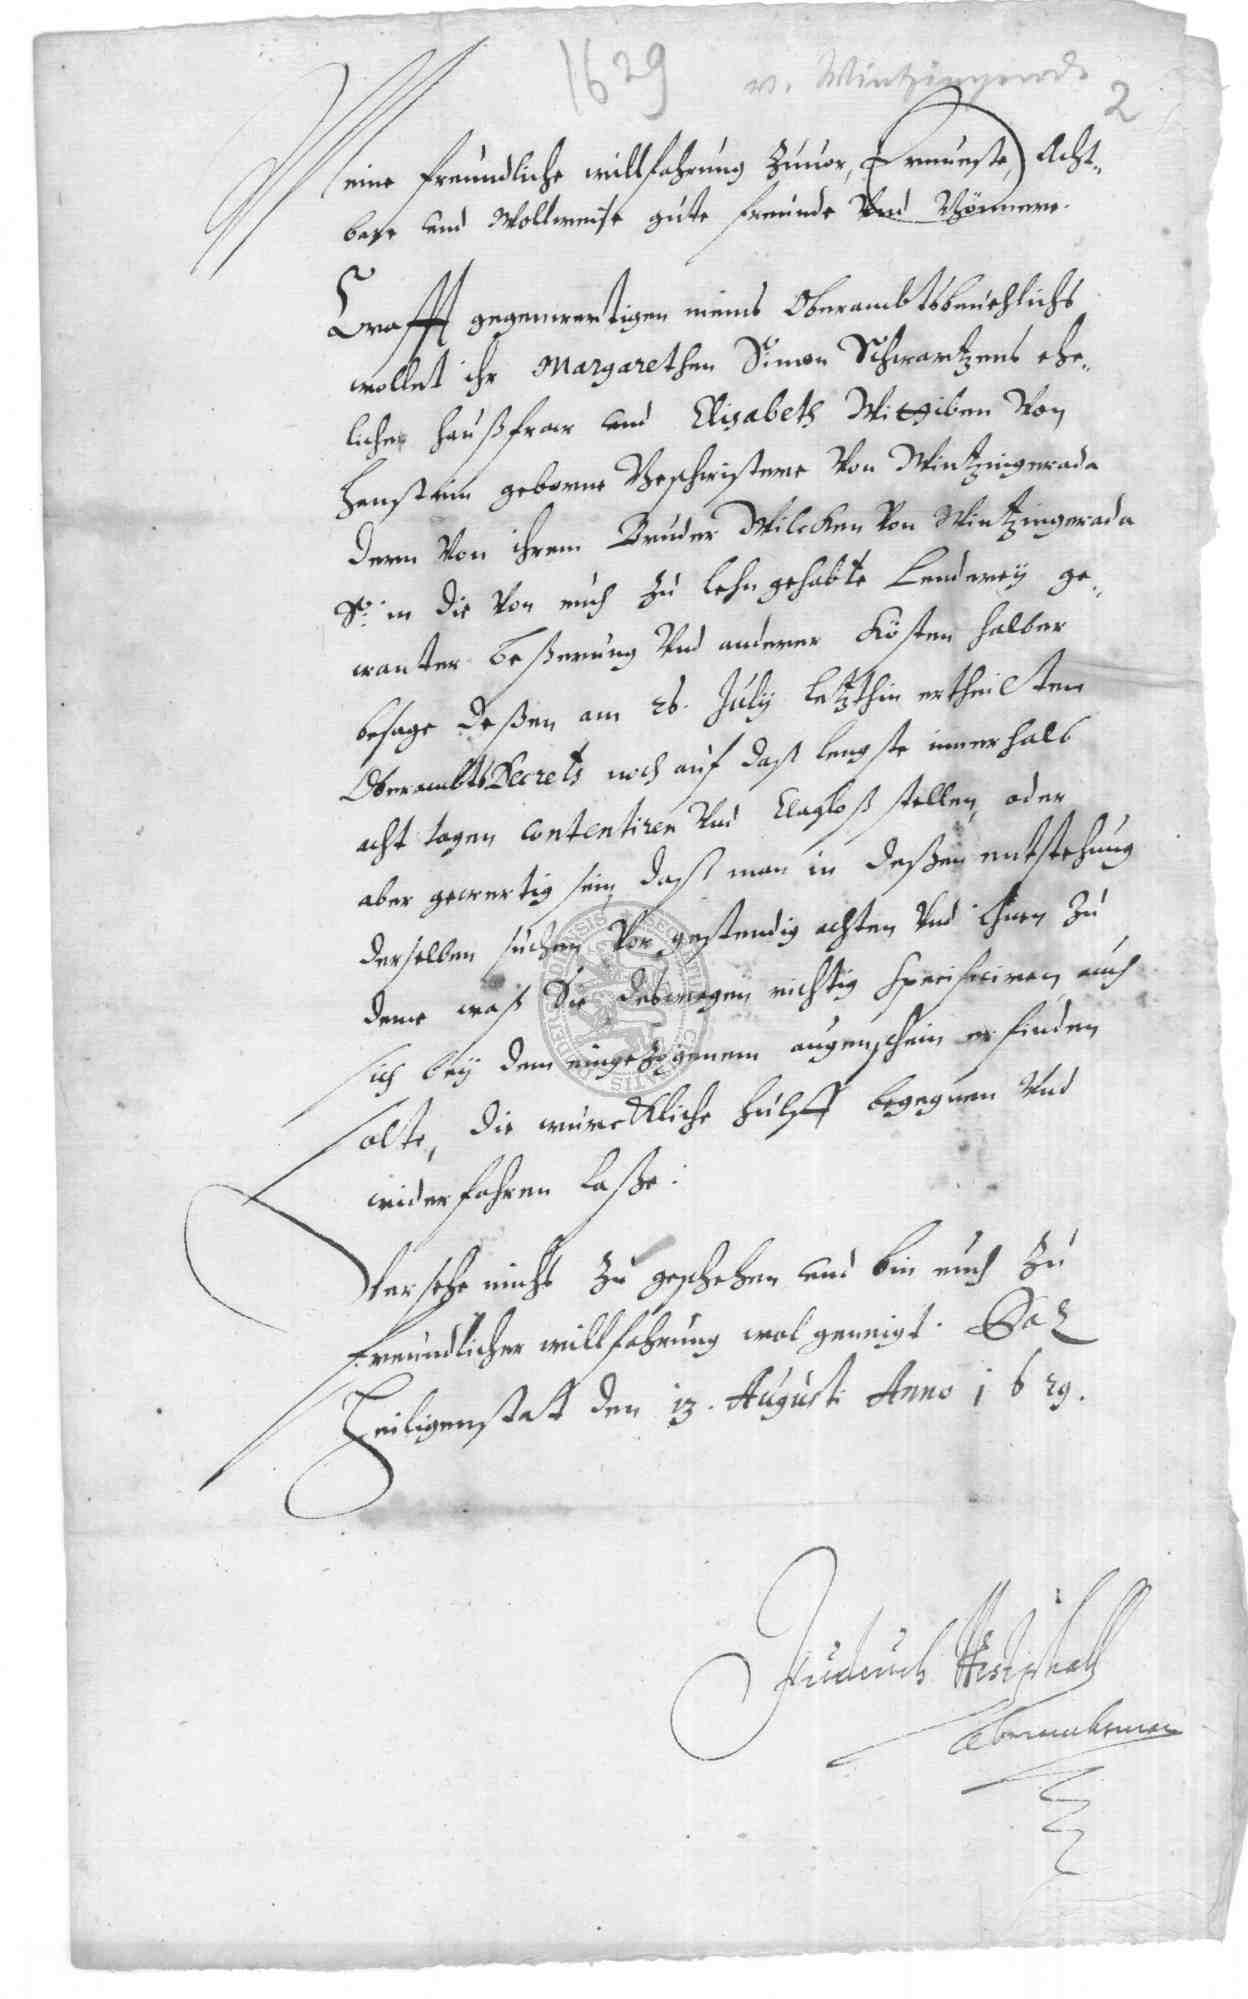 1629 v. Wintzingerode
2
Meine freundliche willfahrung Zuuor, Ernueste, Acht„
bare und Wollweise gute freunde Vnd Gönnere.
Crafft gegenwertigen meins Oberambtsbeuehlichs
wollet ihr Margarethen Simon Schwartzens ehe„
liche haußfraw und Elisabeth Wittiben Von
Hanstein geborne Geschwistere Von Wintzingeroda
denen Von ihrem Bruder Wilcken Von Wintzingeroda
S. in die Von euch Zu lehn gehabte Lenderey ge„
wanter beßerung Vnd anderer Kösten halber
besage deßen am 26. July letzthin ertheilten
OberambtsDecrets noch auf daß lengste innerhalb
acht tagen contentiren Vnd Clagloß stellen, oder
aber gewertig sein, daß man in deßen entstehung
derselben suchen Vor gestendig achten Vnd ihnen Zu
deme waß Sie deswegen richtig specificiren, auch
sich bey dem eingezogenem augenschein erfinden
solte, die würckliche hülff begegnen Vnd
widerfahren laße:
Versehe michs Zu geschehen und bin euch Zu
freundlicher willfahrung wol geneigt. Dat
Heiligenstatt den 13. Augusti Anno 1629.
Westphall
Oberambtman